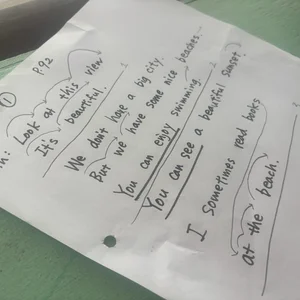 P.92
①
m: Look at this view
It's beautiful.
We don't have a big city.
But we have some nice beaches.
You can enjoy swimming.
You can see a beautiful sunset.
I sometimes read books
at the beach.